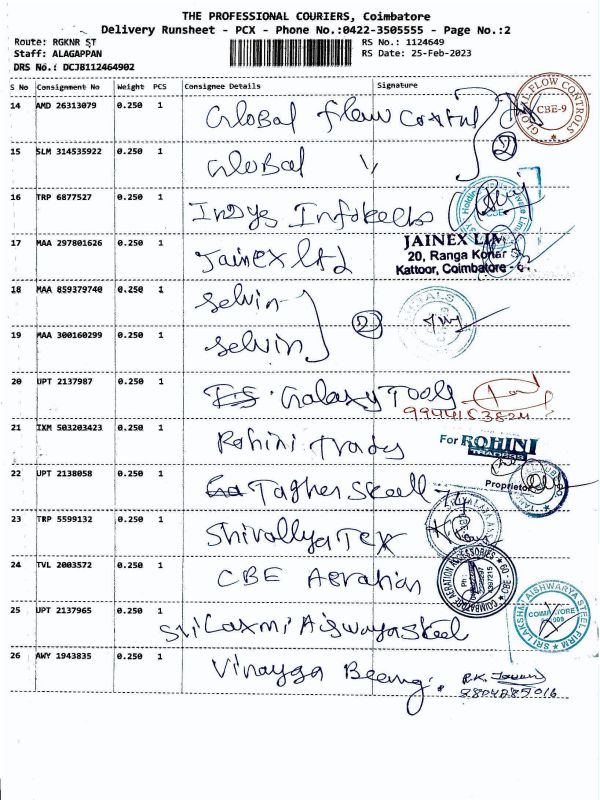 THE PROFESSIONAL COURIERS, Coimbatore
Delivery Runsheet - PCX - Phone No.:0422-3505555 - Page No.:2
Route: RGKNR ST RS No.: 1124649
Staff: ALAGAPPAN RS Date: 25-Feb-2023
DRS No.: DCJB112464902
S No Consignment No Weight PCS Consignee Details Signature
14 AMD 26313079 0.250 1 Global Flow GLOBAL FLOW CONTROLS CBE-9
15 SLM 314535922 0.250 1 Global 2
16 TRP 6877527 0.250 1 Indys
17 MAA 297801626 0.250 1 Jainex Ltd JAINEX LIM
20, Ranga Konar
Kattoor, Coimbatore -
18 MAA 859379740 0.250 1 Selvin
19 MAA 300160299 0.250 1 Selvin 2
20 UPT 2137987 0.250 1 Galaxy Tools
9944153824
21 IXM 503203423 0.250 1 Rohini For ROHINI
TRADERS
Proprietor
22 UPT 2138058 0.250 1
23 TRP 5599132 0.250 1 Shivallya Tex
24 TVL 2003572 0.250 1 CBE Aeration COIMBATORE AERATION ACCESSORIES
25 UPT 2137965 0.250 1 Sri Laxmi Aiswaya Steel SRI LAKSHMI AISHWARYA STEEL FIRM COIMBATORE
26 AWY 1943835 0.250 1 Vinayga R.K.